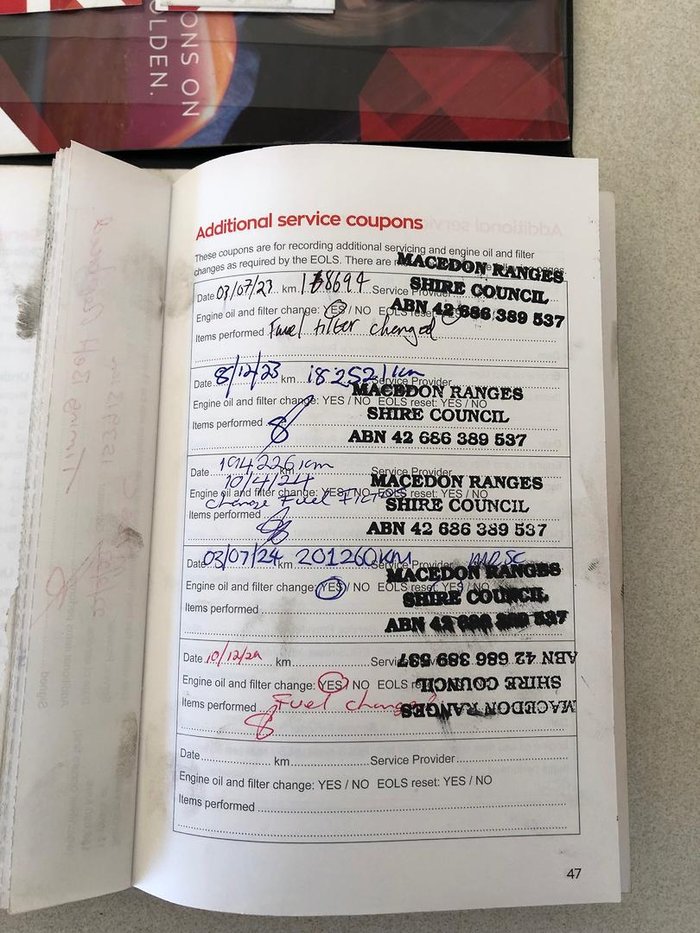 ONS ON
OLDEN.
Additional service coupons
These coupons are for recording additional servicing and engine oil and filter
changes as required by the EOLS. There are
MACEDON RANGES
SHIRE COUNCIL
ABN 42 686 389 537
Date 03/07/23 km 168694 Service Provider
Engine oil and filter change: YES / NO EOLS reset:
Items performed Fuel filter changed
Date 8/12/23 km 182521 km Service Provider
MACEDON RANGES
Engine oil and filter change: YES / NO EOLS reset: YES / NO
SHIRE COUNCIL
Items performed
ABN 42 686 389 537
Date 194226 km Service Provider
10/4/24
MACEDON RANGES
Engine oil and filter change: YES / NO EOLS reset: YES / NO
change Fuel Filters
SHIRE COUNCIL
Items performed
ABN 42 686 389 537
Date 03/07/24 km 201260 KM Service Provider MRSC
MACEDON RANGES
Engine oil and filter change: YES / NO EOLS reset: YES / NO
SHIRE COUNCIL
Items performed
ABN 42 686 389 537
Date 10/12/24 km
ABN 42 686 389 537
Engine oil and filter change: YES / NO EOLS
SHIRE COUNCIL
Items performed Fuel
MACEDON RANGES
Date km Service Provider
Engine oil and filter change: YES / NO EOLS reset: YES / NO
Items performed
47